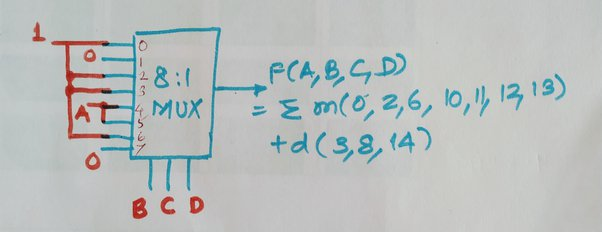 1
0
0
1
2
3
4
5
6
7
8:1
MUX
A
0
B C D
F(A,B,C,D)
= Σ m(0, 2,6, 10,11, 12,13)
+d(3,8,14)